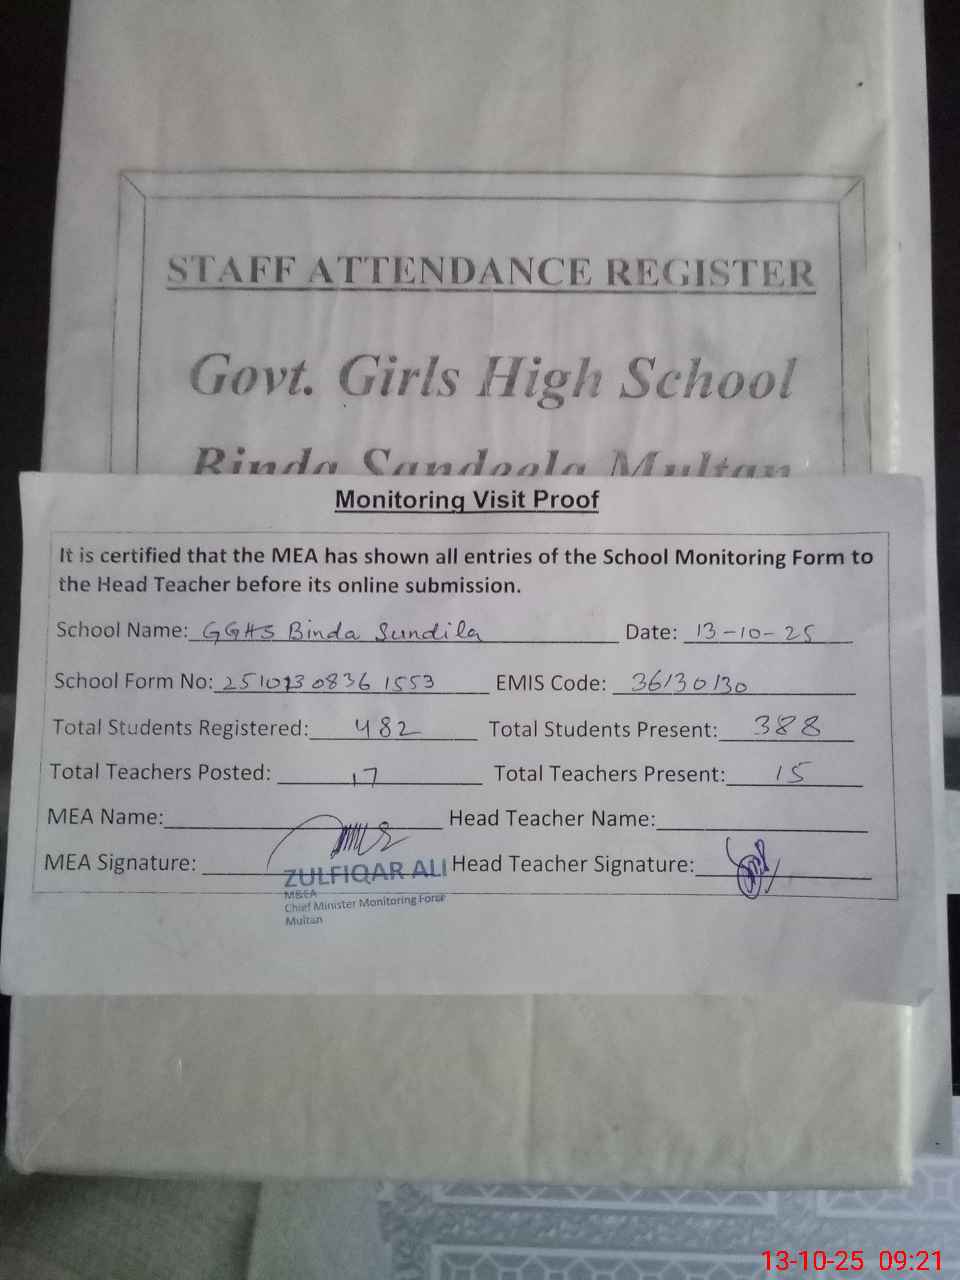 STAFF ATTENDANCE REGISTER
Govt. Girls High School
Binda Sandeela Multan
Monitoring Visit Proof
It is certified that the MEA has shown all entries of the School Monitoring Form to
the Head Teacher before its online submission.
School Name: GGHS Binda Sundila Date: 13-10-25
School Form No: EMIS Code: 36130130
Total Students Registered: 482 Total Students Present: 388
Total Teachers Posted: 17 Total Teachers Present: 15
MEA Name: Head Teacher Name:
MEA Signature: Head Teacher Signature:
ZULFIQAR ALI
M&EA
Chief Minister Monitoring Force
Multan
13-10-25 09:21